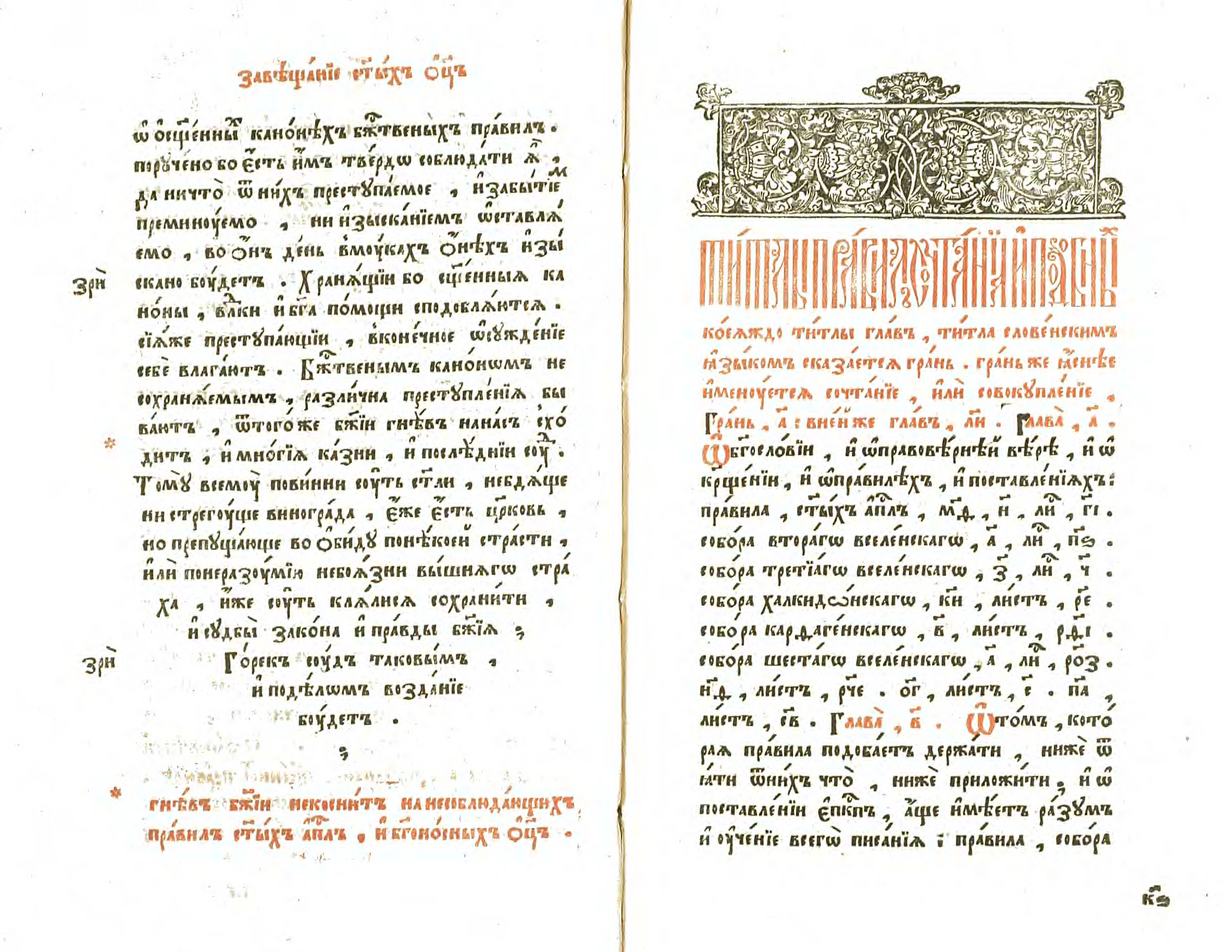 завѣща́нїе ст҃ы́хъ ѻ҆ц҃ъ
ѡ҆ ѻсщ҃е́нны̑ кано́нѣхъ бж҃твеныхъ пра́вилъ .
порꙋ́чено бо є҆́сть и҆̀мъ тве́рдѡ соблюда́ти ѧ҆̀ ,
да ничто̀ ѿ ни́хъ престꙋпа́емое , и҆ забы́тїемъ
преминоу́емо , ни и҆зыска́нїемъ ѡ҆ставлѧ́
емо , во ѻ҆́нъ де́нь в̾моука́хъ ѻ҆́нѣхъ и҆зы́
скано боу́детъ . Хранѧ́щїи бо сщ҃е́нныѧ ка
зри̂
но́ны , вл҃ки и҆ бг҃а по́мощи сподоблѧ́ютсѧ .
сїѧ́же престꙋпа́ющїи , в̾коне́чное ѡ҆сꙋжде́нїе
себѐ влага́ютъ . Бж҃твенымъ кано́нѡмъ не
сохранѧ́емымъ , разли́чна престꙋпле́нїѧ бы
ва́ютъ , ѿтого́же бж҃їи гнѣ́въ нана́съ схо́
*
дитъ , и҆ мно́гїѧ ка́зни , и҆ послѣ́днїи соу́д .
Томꙋ̀ всемоу̀ пови́нни соу́ть ст҃ли , небдѧ́ще
ни стрегоу́ще виногра́да , є҆́же є҆́сть цр҃ковь ,
но препꙋща́юще во ѻ҆би́дꙋ понѣ́коей стра́сти ,
и҆лѝ понеразоу́мїю небоѧ́зни вы́шнѧгѡ стра́
ха , и҆̀же соу́ть клѧ́лисѧ сохрани́ти ,
и҆ сꙋдбы̀ зако́на и҆ пра́вды бж҃їѧ ;
зри̂
Го́рекъ соу́дъ таковы́мъ ,
и҆ подѣ́лѡмъ возда́нїе
боу́детъ .
;
* гнѣ́въ бж҃їи некосни́тъ нанесоблюда́ющихъ ,
пра́вилъ ст҃ы́хъ а҆пл҃ъ , и҆ бг҃оно́сныхъ ѻ҆ц҃ъ .
коеѧ́ждо ти́тлы гла́въ , ти́тла слове́нскимъ
ꙗ҆зы́комъ сказа́етсѧ гра́нь . гра́нь же ꙗ҆́снѣе
и҆менꙋ́етсѧ сочта́нїе , и҆лѝ совокꙋпле́нїе ,
Гра́нь , а҃ : вне́йже гла́въ , л҃и . Глава̀ , а҃ .
Ѡ҆бг҃осло́вїи , и҆ ѡ҆правовѣ́рнѣй вѣ́рѣ , и҆ ѡ҆
крщ҃е́нїи , и҆ ѡ҆пра́вилѣхъ , и҆ поставле́нїѧхъ :
пра́вила , ст҃ы́хъ а҆пл҃ъ , м҃ѳ , н҃ , ли́ , г҃і .
собо́ра втора́гѡ вселе́нскагѡ , а҃ , ли́ , п҃ѕ .
собо́ра тре́тїѧгѡ вселе́нскагѡ , з҃ , ли́ , ч҃ .
собо́ра халкидѡ́нскагѡ , к҃и , ли́стъ , р҃е .
собо́ра карѳаге́нскагѡ , в҃ , ли́стъ , рѳ҃і .
собо́ра шеста́гѡ вселе́нскагѡ , а҃ , ли́ , ро҃з .
н҃ѳ , ли́стъ , рч҃е . о҃г , ли́стъ , с҃ . п҃а ,
ли́стъ , с҃в . Глава̀ , в҃ . Ѡ҆то́мъ , кото́
раѧ пра́вила подоба́етъ держа́ти , нижѐ ѿ
ꙗ҆́ти ѿни́хъ что̀ , нижѐ приложи́ти ; и҆ ѡ҆
поставле́нїи є҆пк҃пъ , а҆́ще и҆мѣ́етъ ра́зꙋмъ
и҆ оу҆че́нїе всегѡ̀ писа́нїѧ : пра́вила , собо́ра
к҃ѕ